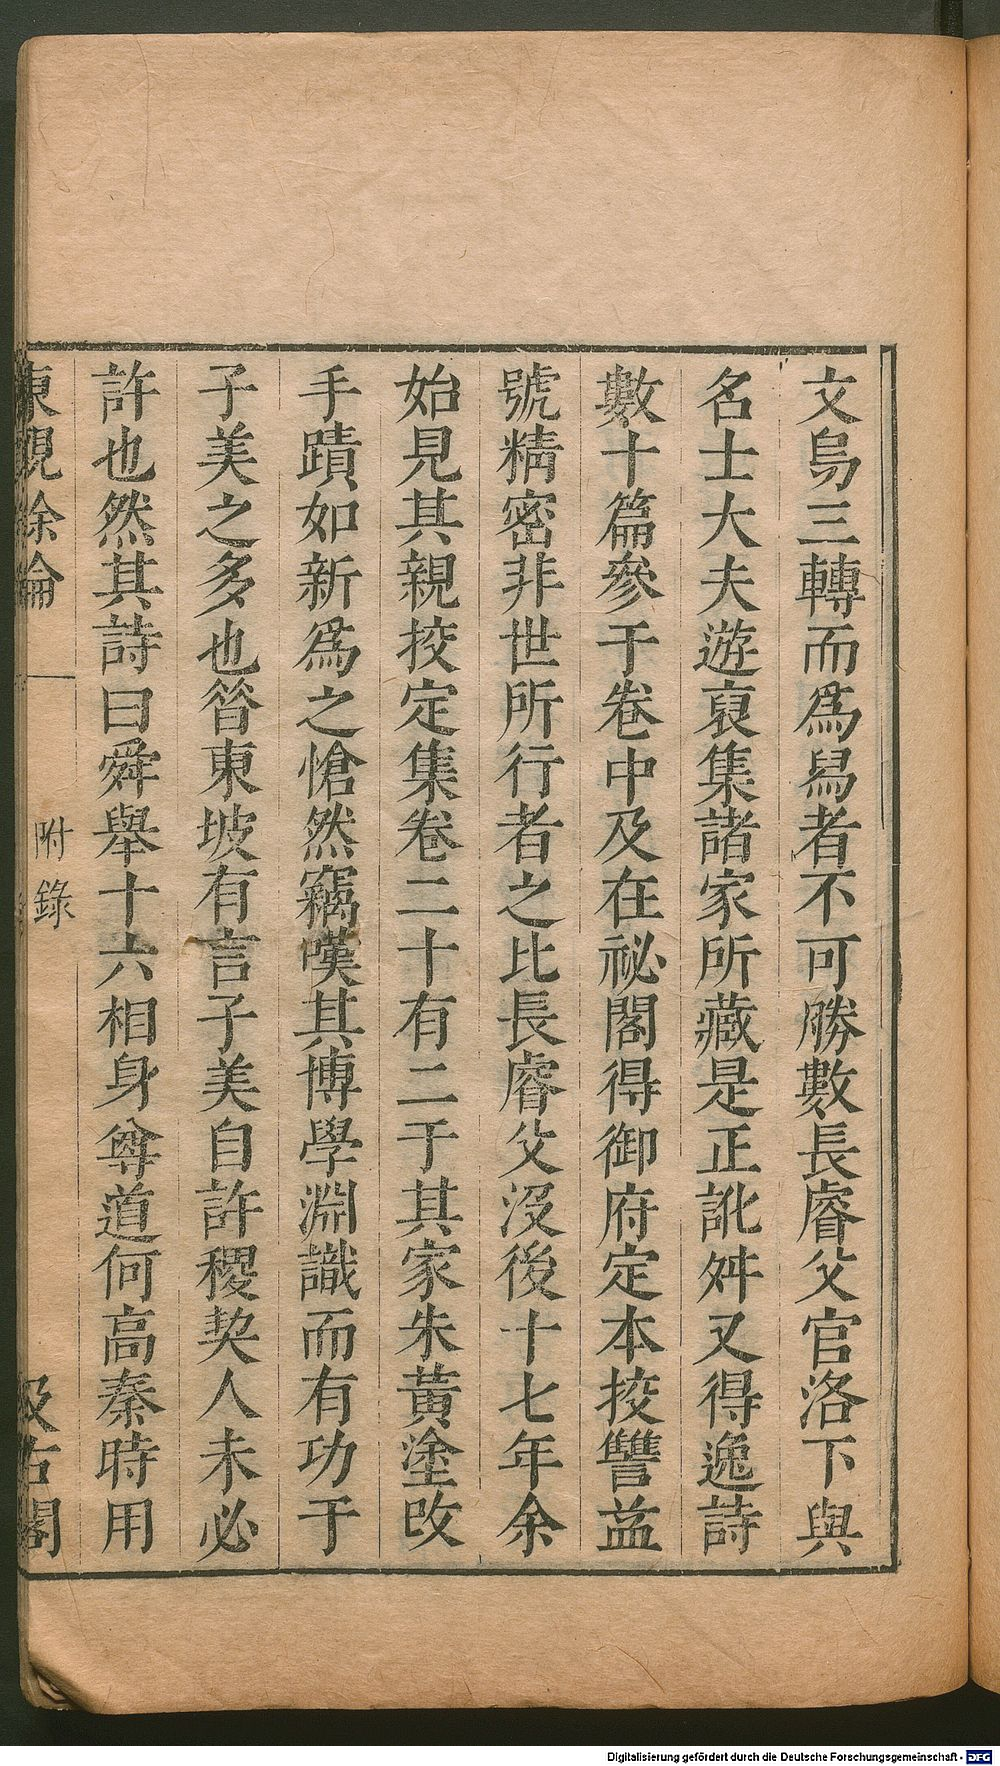 文烏三轉而爲舄者不可勝數長睿父官洛下與
名士大夫遊裒集諸家所藏是正訛舛又得逸詩
數十篇參于卷中及在祕閣得御府定本挍讐益
號精密非世所行者之比長睿父沒後十七年余
始見其親挍定集卷二十有二于其家朱黃塗改
手蹟如新爲之愴然竊嘆其博學淵識而有功于
子美之多也昝東坡有言子美自許稷契人未必
許也然其詩曰舜舉十六相身尊道何高秦時用
東觀餘論
附錄
汲古閣
Digitalisierung gefördert durch die Deutsche Forschungsgemeinschaft - DFG